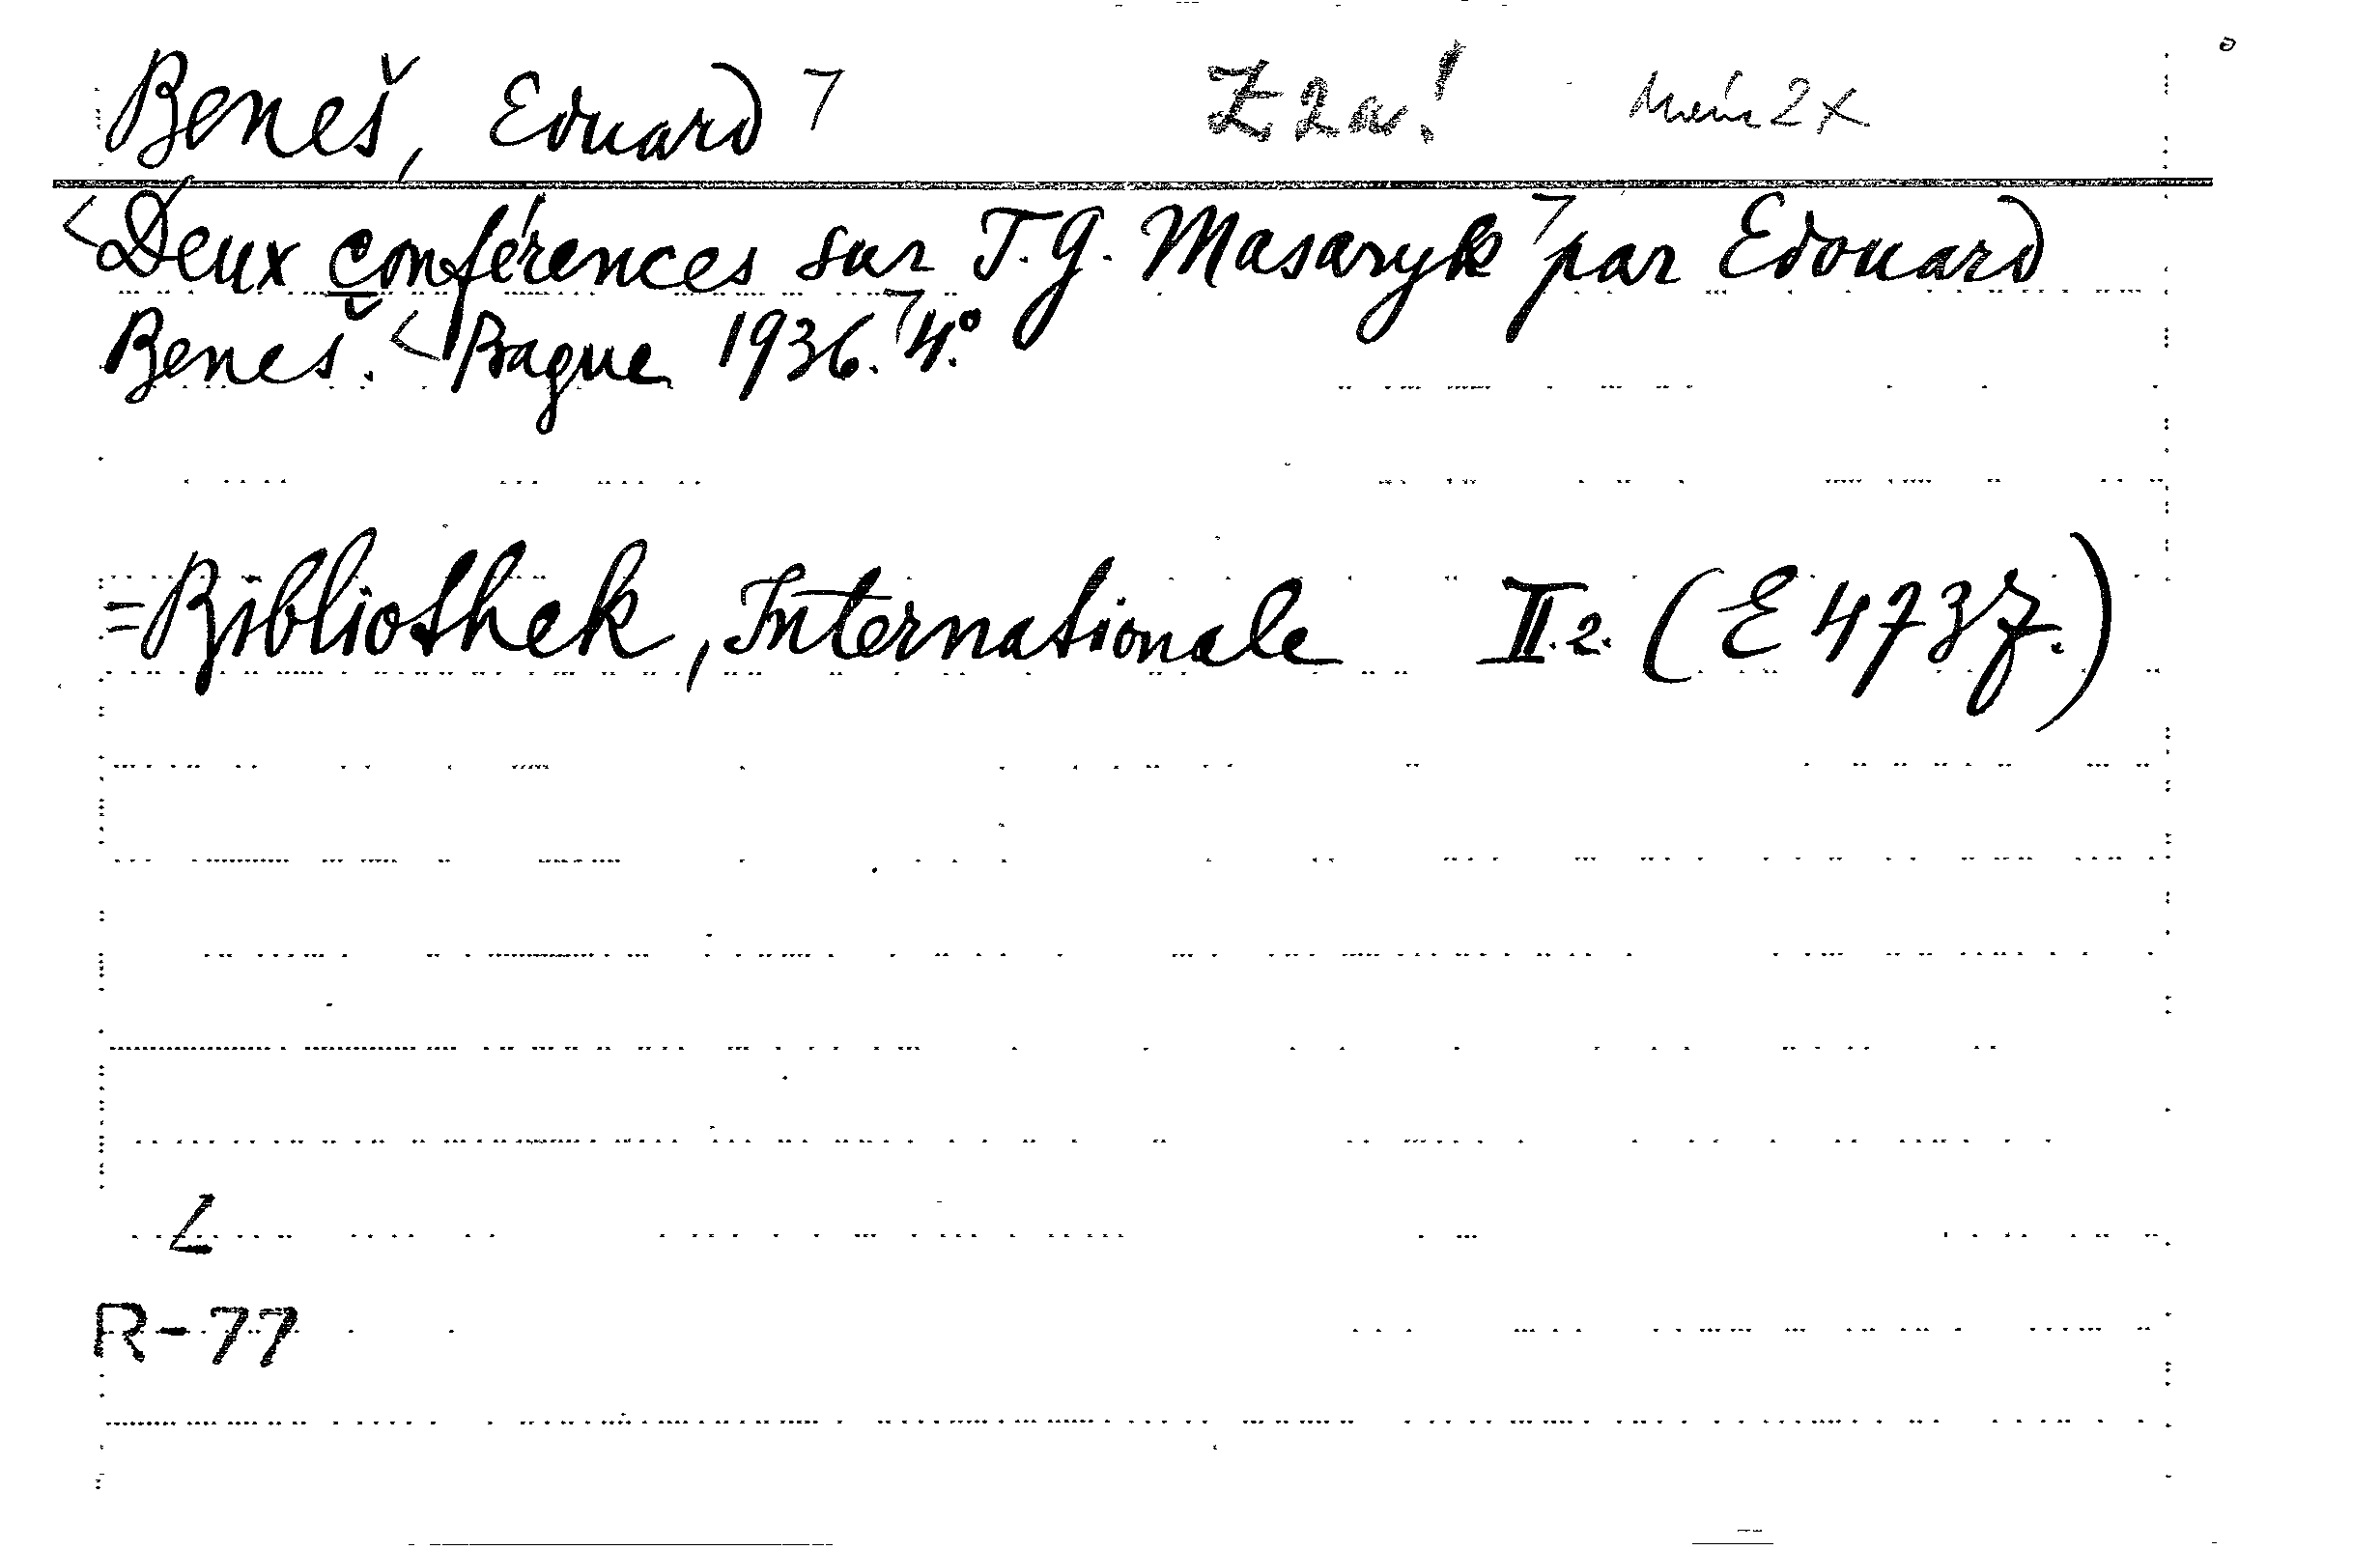 Beneš, Eduard ⁊ Z 2a! 2x
<Deux conférences sur T. G. Masaryk⁊ par Edouard
Beneš. <Prague 1936.⁊ 4°.
=Bibliothek, Internationale II.2. (E 4737.)
L
R-77